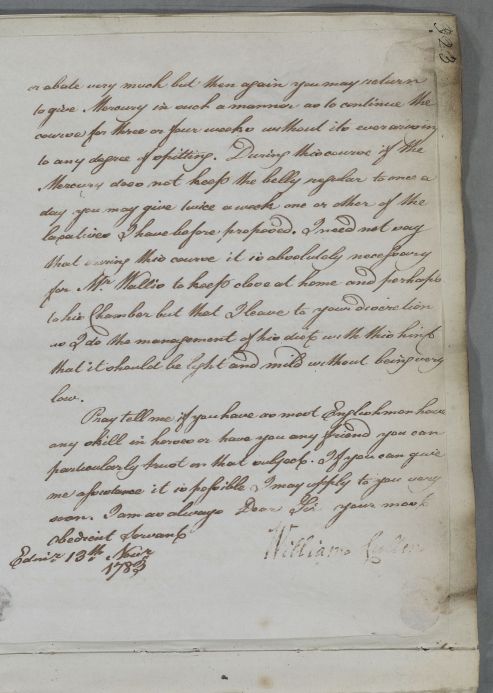 323
or abate very much but then again you may return
to give Mercury in such a manner as to continue the
course for three or four weeks without its ever arising
to any degree of spitting. During this course if the
Mercury does not keep the belly regular to once a
day you may give twice a week one or other of the
laxatives I have before proposed. I need not say
that during this course it is absolutely necessary
for Mr Wallis to keep close at home and perhaps
to his Chamber but that I leave to your discretion
as I do the management of his diet with this hint
that it should be light and mild without being very
low.
Pray tell me if you have as most Englishmen have
any skill in horses or have you any friend you can
particularly trust on that subject. If you can give
me assistance it is possible I may apply to you very
soon. I am as always Dear Sir your most
obedient Servant
William Cullen
Edinr 13th Novr
1783